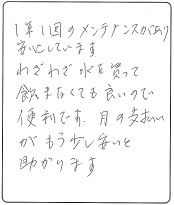 1年1回のメンテナンスがあり
安心しています
わざわざ水を買って
飲まなくても良いので
便利です。月の支払い
がもう少し安いと
助かります